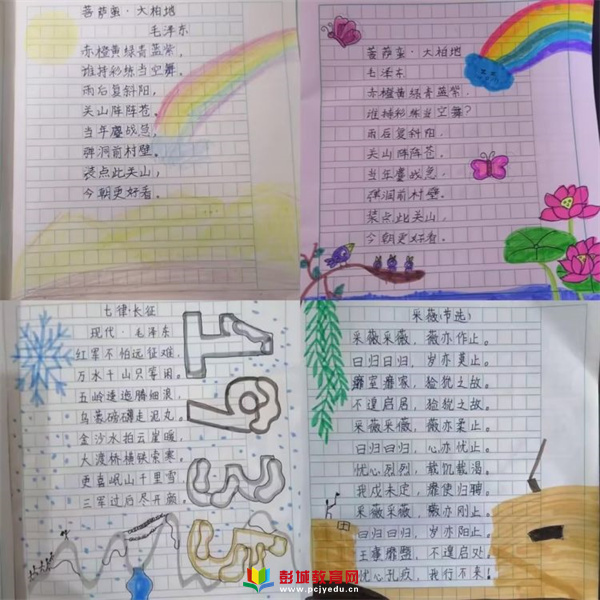 菩萨蛮·大柏地
毛泽东
赤橙黄绿青蓝紫，
谁持彩练当空舞。
雨后复斜阳，
关山阵阵苍。
当年鏖战急，
弹洞前村壁。
装点此关山，
今朝更好看。
菩萨蛮·大柏地
毛泽东
赤橙黄绿青蓝紫，
谁持彩练当空舞？
雨后复斜阳，
关山阵阵苍。
当年鏖战急，
弹洞前村壁。
装点此关山，
今朝更好看。
七律·长征
现代·毛泽东
红军不怕远征难，
万水千山只等闲。
五岭逶迤腾细浪，
乌蒙磅礴走泥丸。
金沙水拍云崖暖，
大渡桥横铁索寒。
更喜岷山千里雪
三军过后尽开颜
1935
采薇（节选）
采薇采薇，薇亦作止。
曰归曰归，岁亦莫止。
靡室靡家，猃狁之故。
不遑启居，猃狁之故。
采薇采薇，薇亦柔止。
曰归曰归，心亦忧止。
忧心烈烈，载饥载渴。
我戍未定，靡使归聘。
采薇采薇，薇亦刚止。
曰归曰归，岁亦阳止。
王事靡盬，不遑启处。
忧心孔疚，我行不来！
彭城教育网
www.pcjyedu.cn